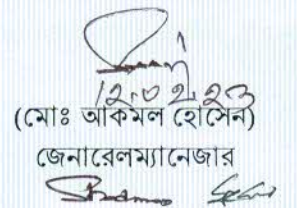 12.02.23
(মোঃ আকমল হোসেন)
জেনারেলম্যানেজার